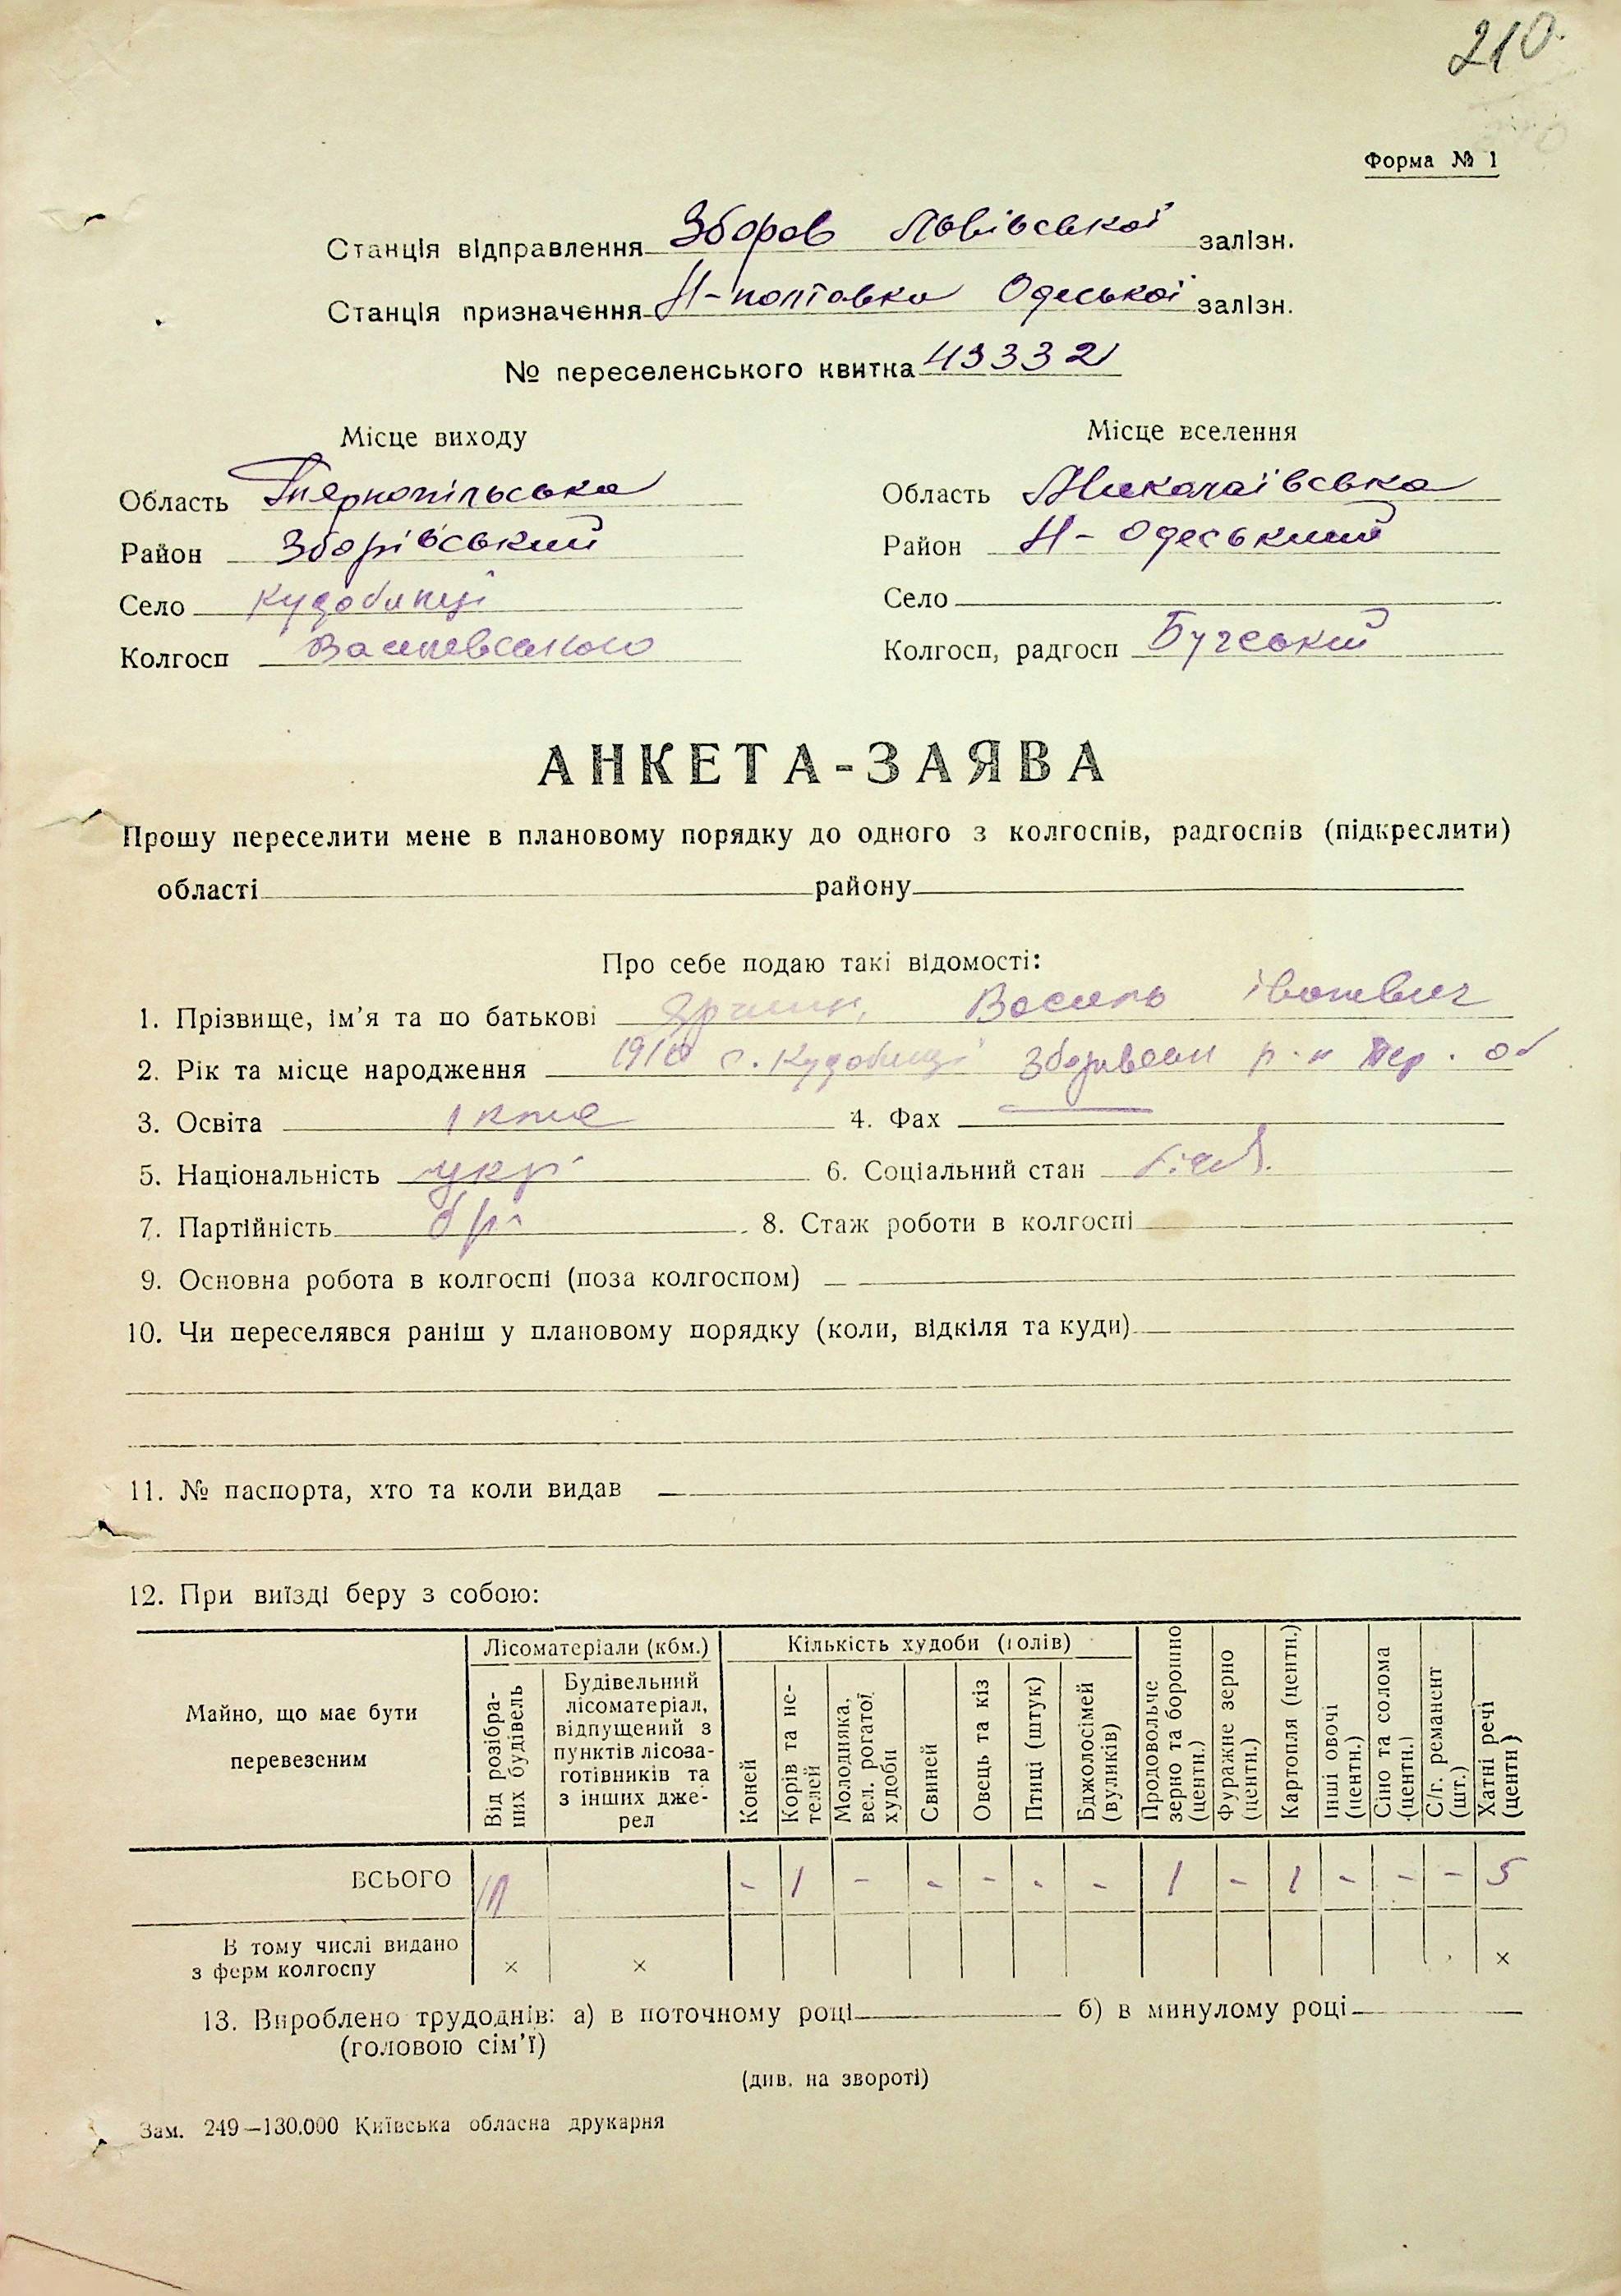 210.
Форма № 1
Станція відправлення Зборов Львівської залізн.
Станція призначення Н-полтавка Одеської залізн.
№ переселенського квитка 43332
Місце виходу
Місце вселення
Область Тернопільська
Область Миколаївська
Район Зборівський
Район Н-Одеський
Село Кудобинці
Село
Колгосп Василевського
Колгосп, радгосп Бугський
АНКЕТА-ЗАЯВА
Прошу переселити мене в плановому порядку до одного з колгоспів, радгоспів (підкреслити)
області району
Про себе подаю такі відомості:
1. Прізвище, ім’я та по батькові Василь Іванович
2. Рік та місце народження 1910 с. Кудобинці Зборівськ р-н Тер. об
3. Освіта 4. Фах —
5. Національність укр 6. Соціальний стан
7. Партійність б/п 8. Стаж роботи в колгоспі
9. Основна робота в колгоспі (поза колгоспом)
10. Чи переселявся раніш у плановому порядку (коли, відкіля та куди)
11. № паспорта, хто та коли видав
12. При виїзді беру з собою:
Майно, що має бути перевезеним
Лісоматеріали (кбм.)
Від розібраних будівель
Будівельний лісоматеріал, відпущений з пунктів лісозаготівників та з інших джерел
Кількість худоби (голів)
Коней
Корів та нетелей
Молодняка, вел. рогатої худоби
Свиней
Овець та кіз
Птиці (штук)
Бджолосімей (вуликів)
Продовольче зерно та борошно (центн.)
Фуражне зерно (центн.)
Картопля (центн.)
Інші овочі (центн.)
Сіно та солома (центн.)
С/г. реманент (шт.)
Хатні речі (центн)
ВСЬОГО - 1 - - - - - 1 - 1 - - - 5
В тому числі видано з ферм колгоспу × × ×
13. Вироблено трудоднів: а) в поточному році б) в минулому році
(головою сім’ї)
(див. на звороті)
Зам. 249—130.000 Київська обласна друкарня